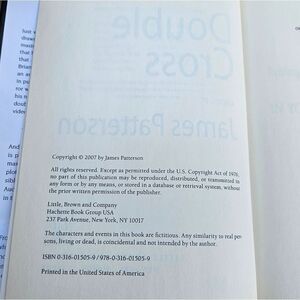 Double
Cross
James Patterson
Copyright © 2007 by James Patterson
All rights reserved. Except as permitted under the U.S. Copyright Act of 1976,
no part of this publication may be reproduced, distributed, or transmitted in
any form or by any means, or stored in a database or retrieval system, without
the prior written permission of the publisher.
Little, Brown and Company
Hachette Book Group USA
237 Park Avenue, New York, NY 10017
The characters and events in this book are fictitious. Any similarity to real per-
sons, living or dead, is coincidental and not intended by the author.
ISBN 0-316-01505-9 / 978-0-316-01505-9
Printed in the United States of America